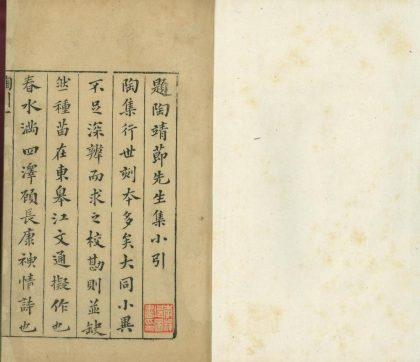 題陶靖節先生集小引
陶集行世刻本多矣大同小異
不足深辨而求之校勘則並缺
然種苗在東皋江文通擬作也
春水滿四澤顧長康神情詩也